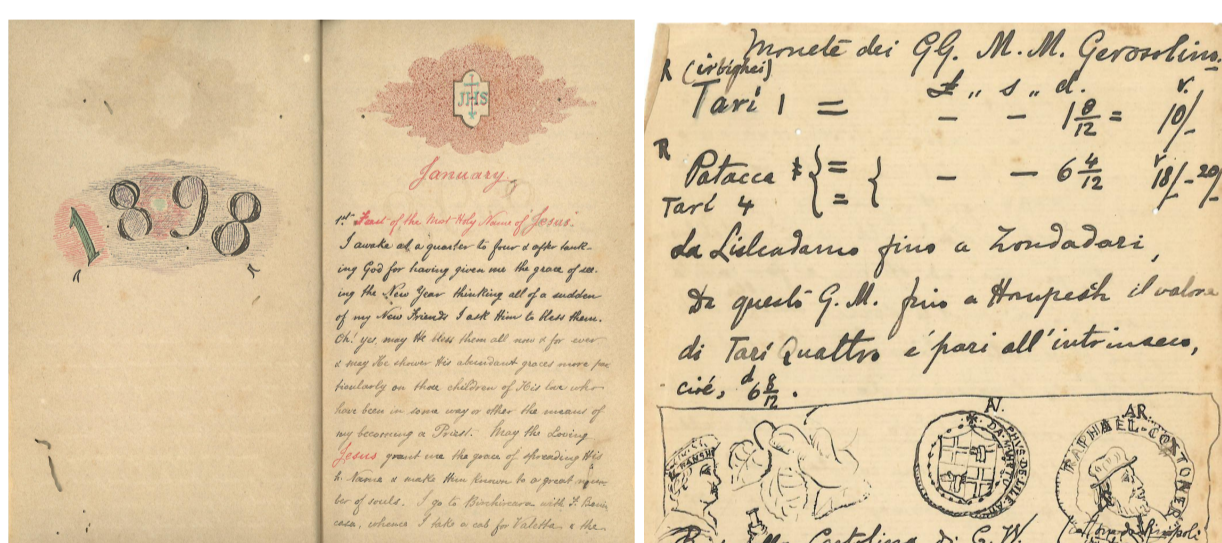 1898
JHS
January.
1st Feast of the Most Holy Name of Jesus.
I awake at a quarter to four & after thank-
ing God for having given me the grace of see-
ing the New Year thinking all of a sudden
of my New Friends I ask Him to bless them.
Oh! yes, may He bless them all now & for ever
& may He shower His abundant graces more par
ticularly on those children of His love who
have been in some way or other the means of
my becoming a Priest. May the Loving
Jesus grant me the grace of spreading His
h. Name & make Him known to a great num
ber of souls. I go to Birchircara with F.
casa, whence I take a cab for Valetta & the
Monete dei GG. M. M. Gerosolim.
R (irbighei)
£ „ s „ d. r.
Tarì 1 = — — 1 8/12 = 10/-
R
Patacca { = { — — 6 4/12 r 18/- 20/
Tarì 4 =
da Lisleadamo fino a Zondadari,
Da questo G. M. fino a Hompesh il valore
di Tarì Quattro è pari all'intrinseco,
cioè, d 6 8/12.
AR.
RAPHAEL·COTONER
PHVS·DE·LILE·AD
Cartolina di G. W.